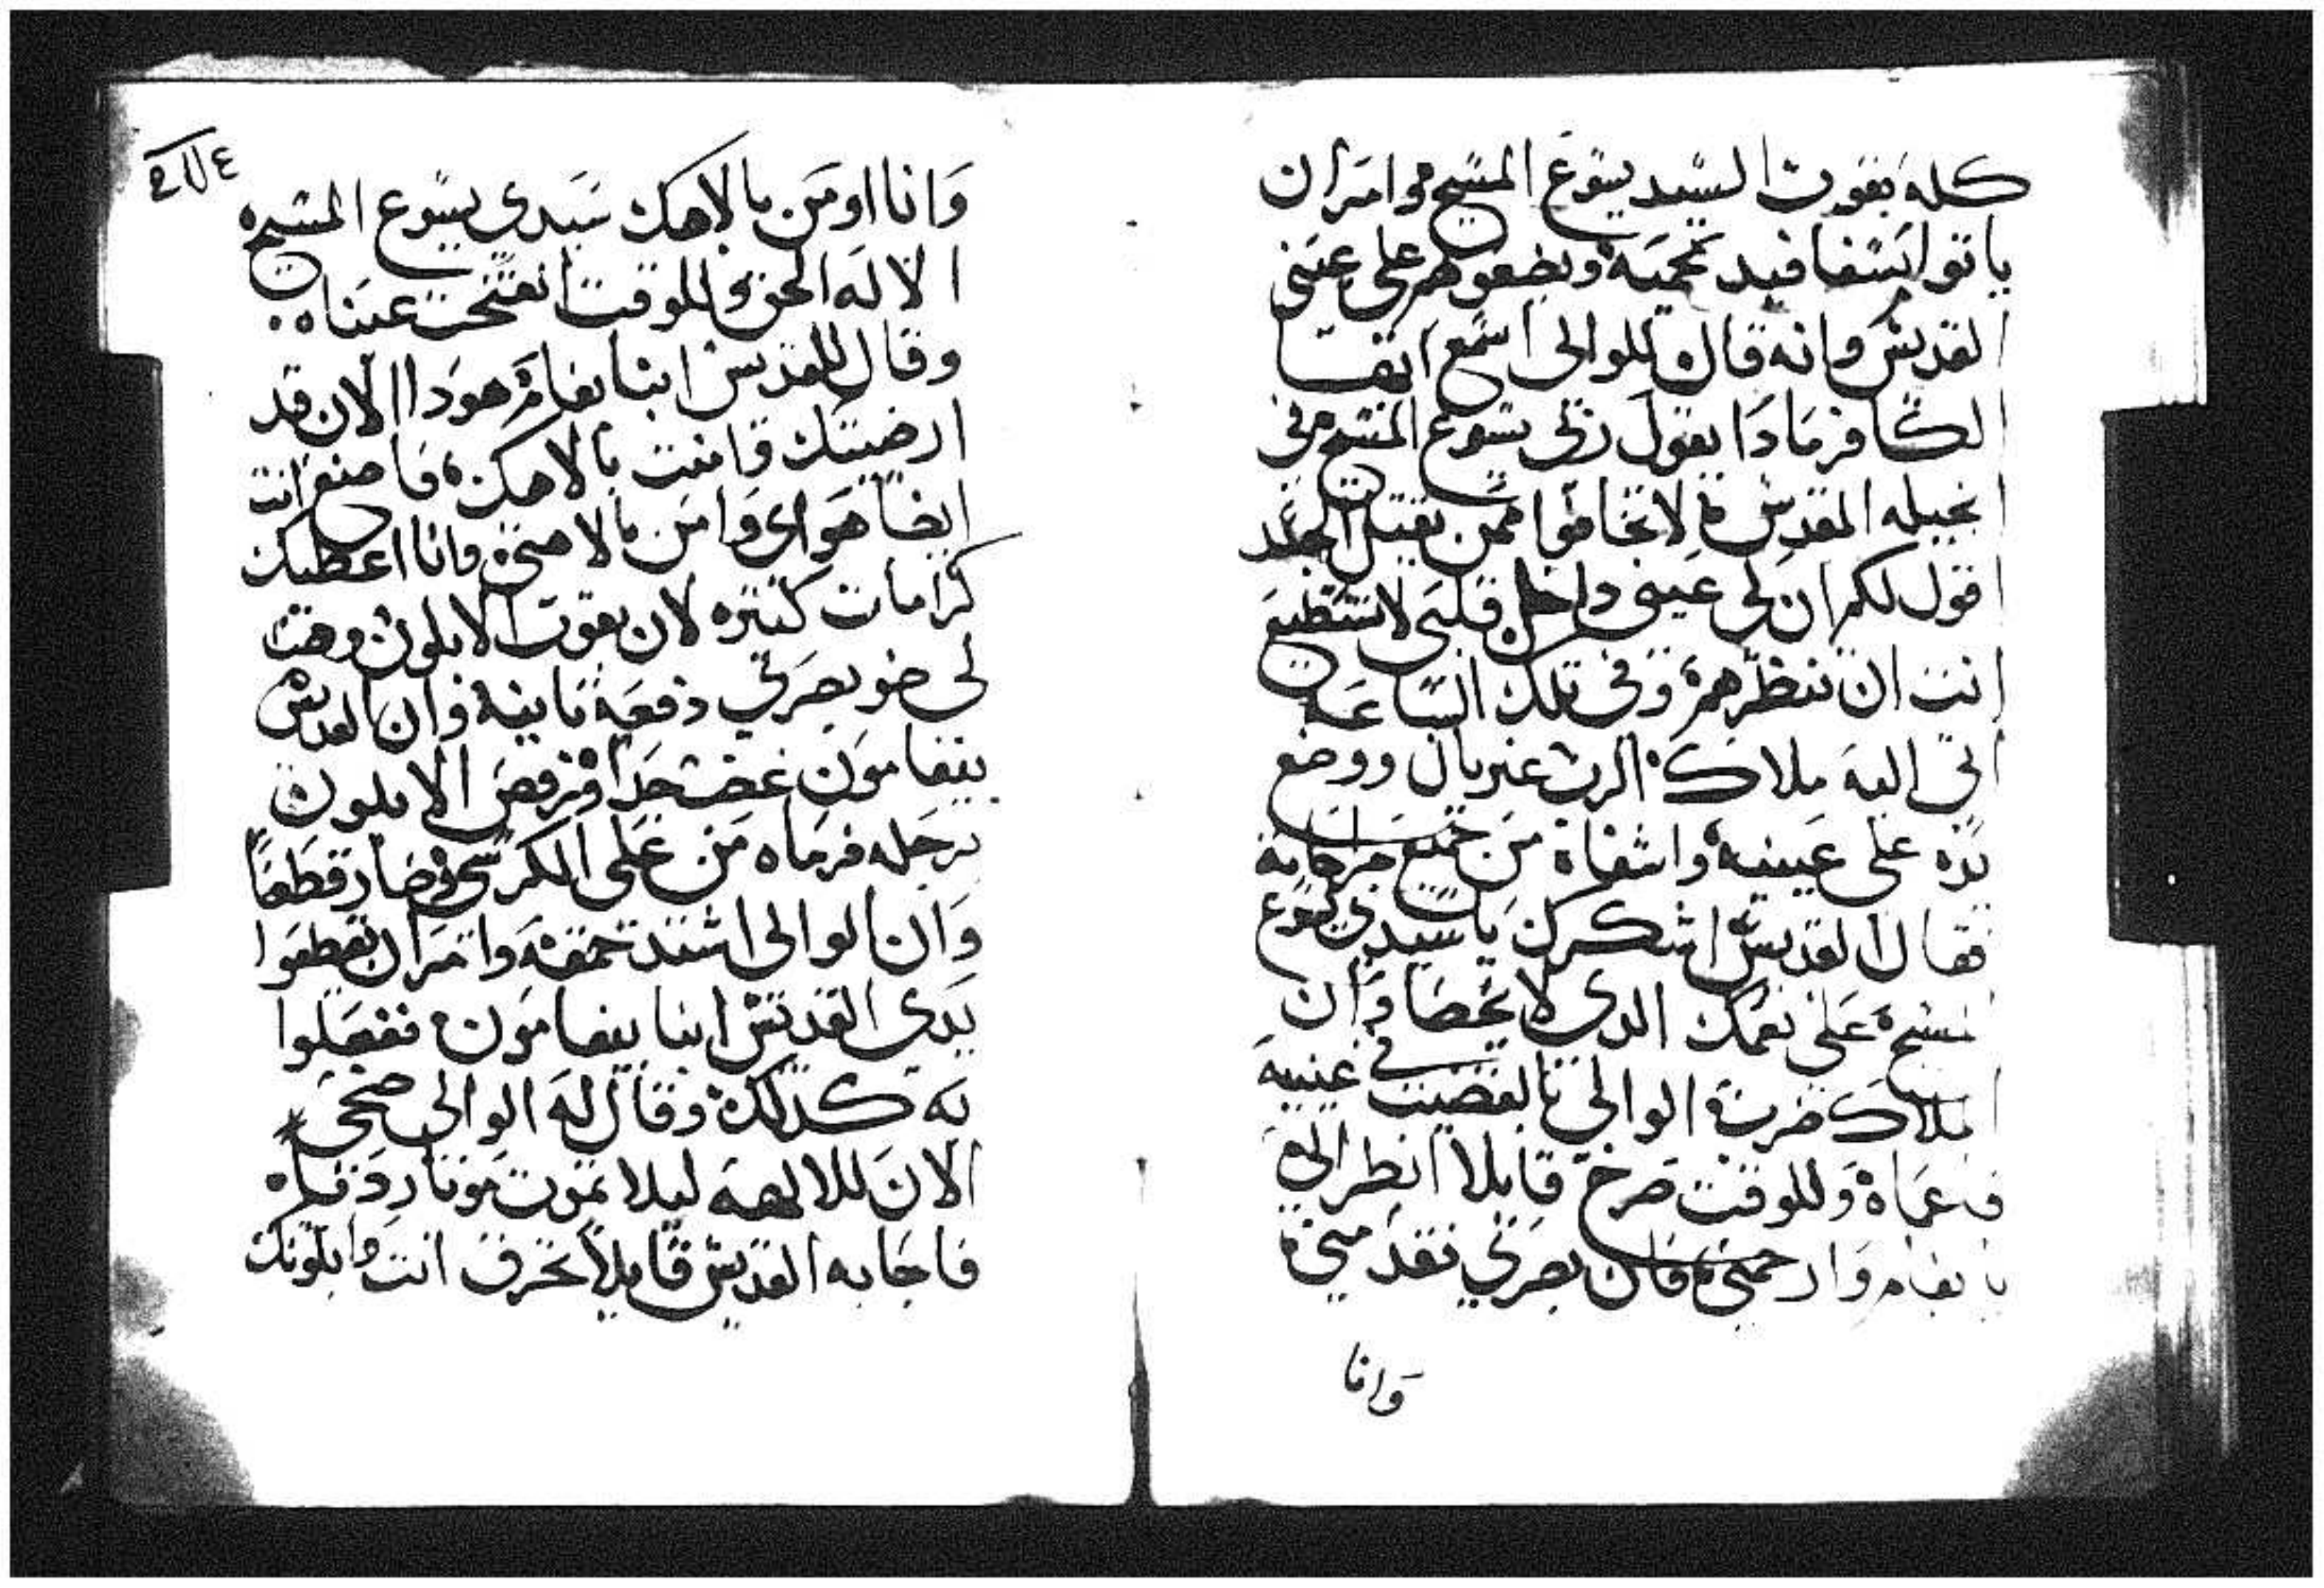 كله بقوت السيد يسوع المسيح وامر ان
ياتوا بسفافيد محميه ويضعوهم على عينى
القديس وانه قال للوالى اسمع ايها
الكافر ماذا يقول ربى يسوع المسيح فى
انجيله المقدس لا تخافوا ممن يقتل الجسد
اقول لكم ان لى عينى داخل قلبى لا تستطيع
انت ان تنظرهم وفى تلك الساعه
اتى اليه ملاك الرب غبريال ووضع
يده على عينيه واشفاه من جميع جراحاته
فقال القديس اشكرك يا سيدى يسوع
المسيح على نعمك الدى لا تحصا وان
الملاك ضرب الوالى بالقضيب فى عينيه
فعماه وللوقت صرخ قايلا انظر الى
يا بفام وارحمنى فان بصرى نقد منى
وانا
٢٨٤
وانا اومن بالاهك سيدى يسوع المسيح
الالاه الحق وللوقت انفتحت عيناه
وقال للقديس انبا بفام هودا الان قد
ارضيتك وامنت بالاهك فاصنع انت
ايضا هواى وامن بالاهتى وانا اعطيك
كرامات كتيره لان بقوت الابلون وهبت
لى ضو بصرى دفعه تانيه وان القديس
بيفامون غضب جدا فرفص الابلون
برجله فرماه من على الكرسى فصار قطعا
وان الوالى اشتد حمقه وامر ان يقطعوا
يدى القديس انبا بيفامون ففعلوا
به كدلك وقال له الوالى ضحى
الان للالهه ليلا تموت موتا رديا
فاجابه القديس قايلا تحرق انت وابلونك